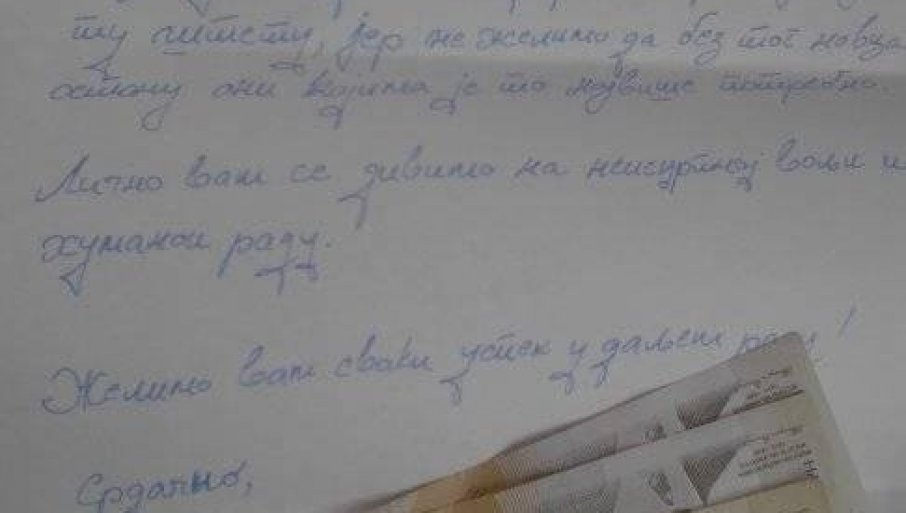 ту чину, јер не желимо да без тог новца
остану они којима је то највише потребно.
Лично вам се дивимо на неисцрпној вољи и
хуманом раду.
Желимо вам сваки успех у даљем раду!
Срдачно,